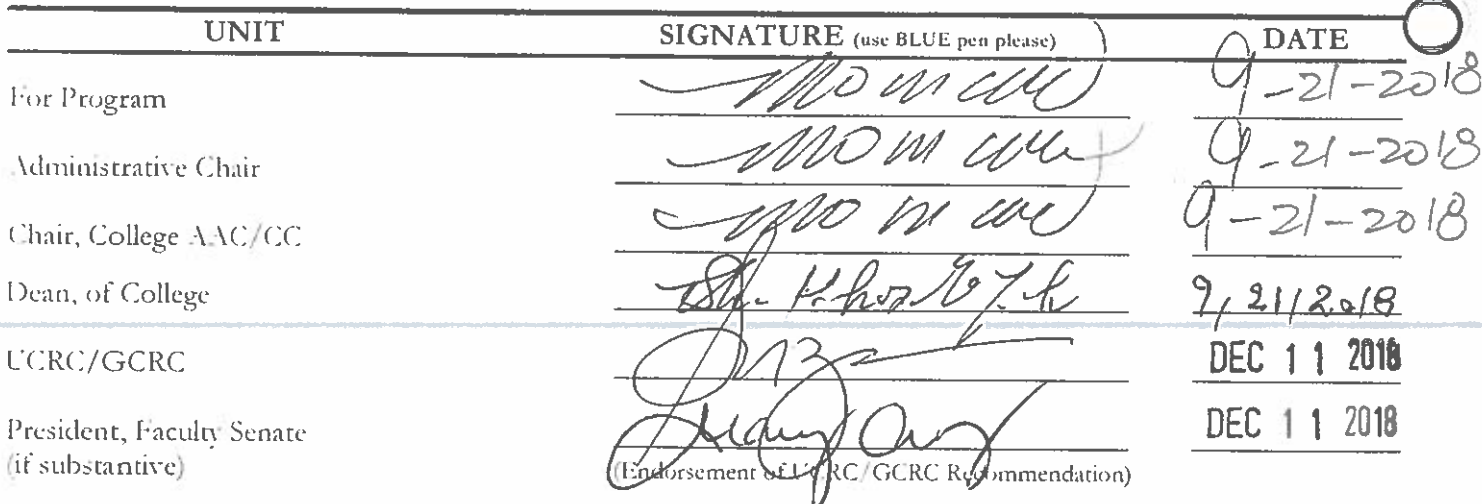 UNIT SIGNATURE (use BLUE pen please) DATE
For Program 9-21-2018
Administrative Chair 9-21-2018
Chair, College AAC/CC 9-21-2018
Dean, of College 9/21/2018
UCRC/GCRC DEC 11 2018
President, Faculty Senate DEC 11 2018
(if substantive) (Endorsement of UCRC/GCRC Recommendation)